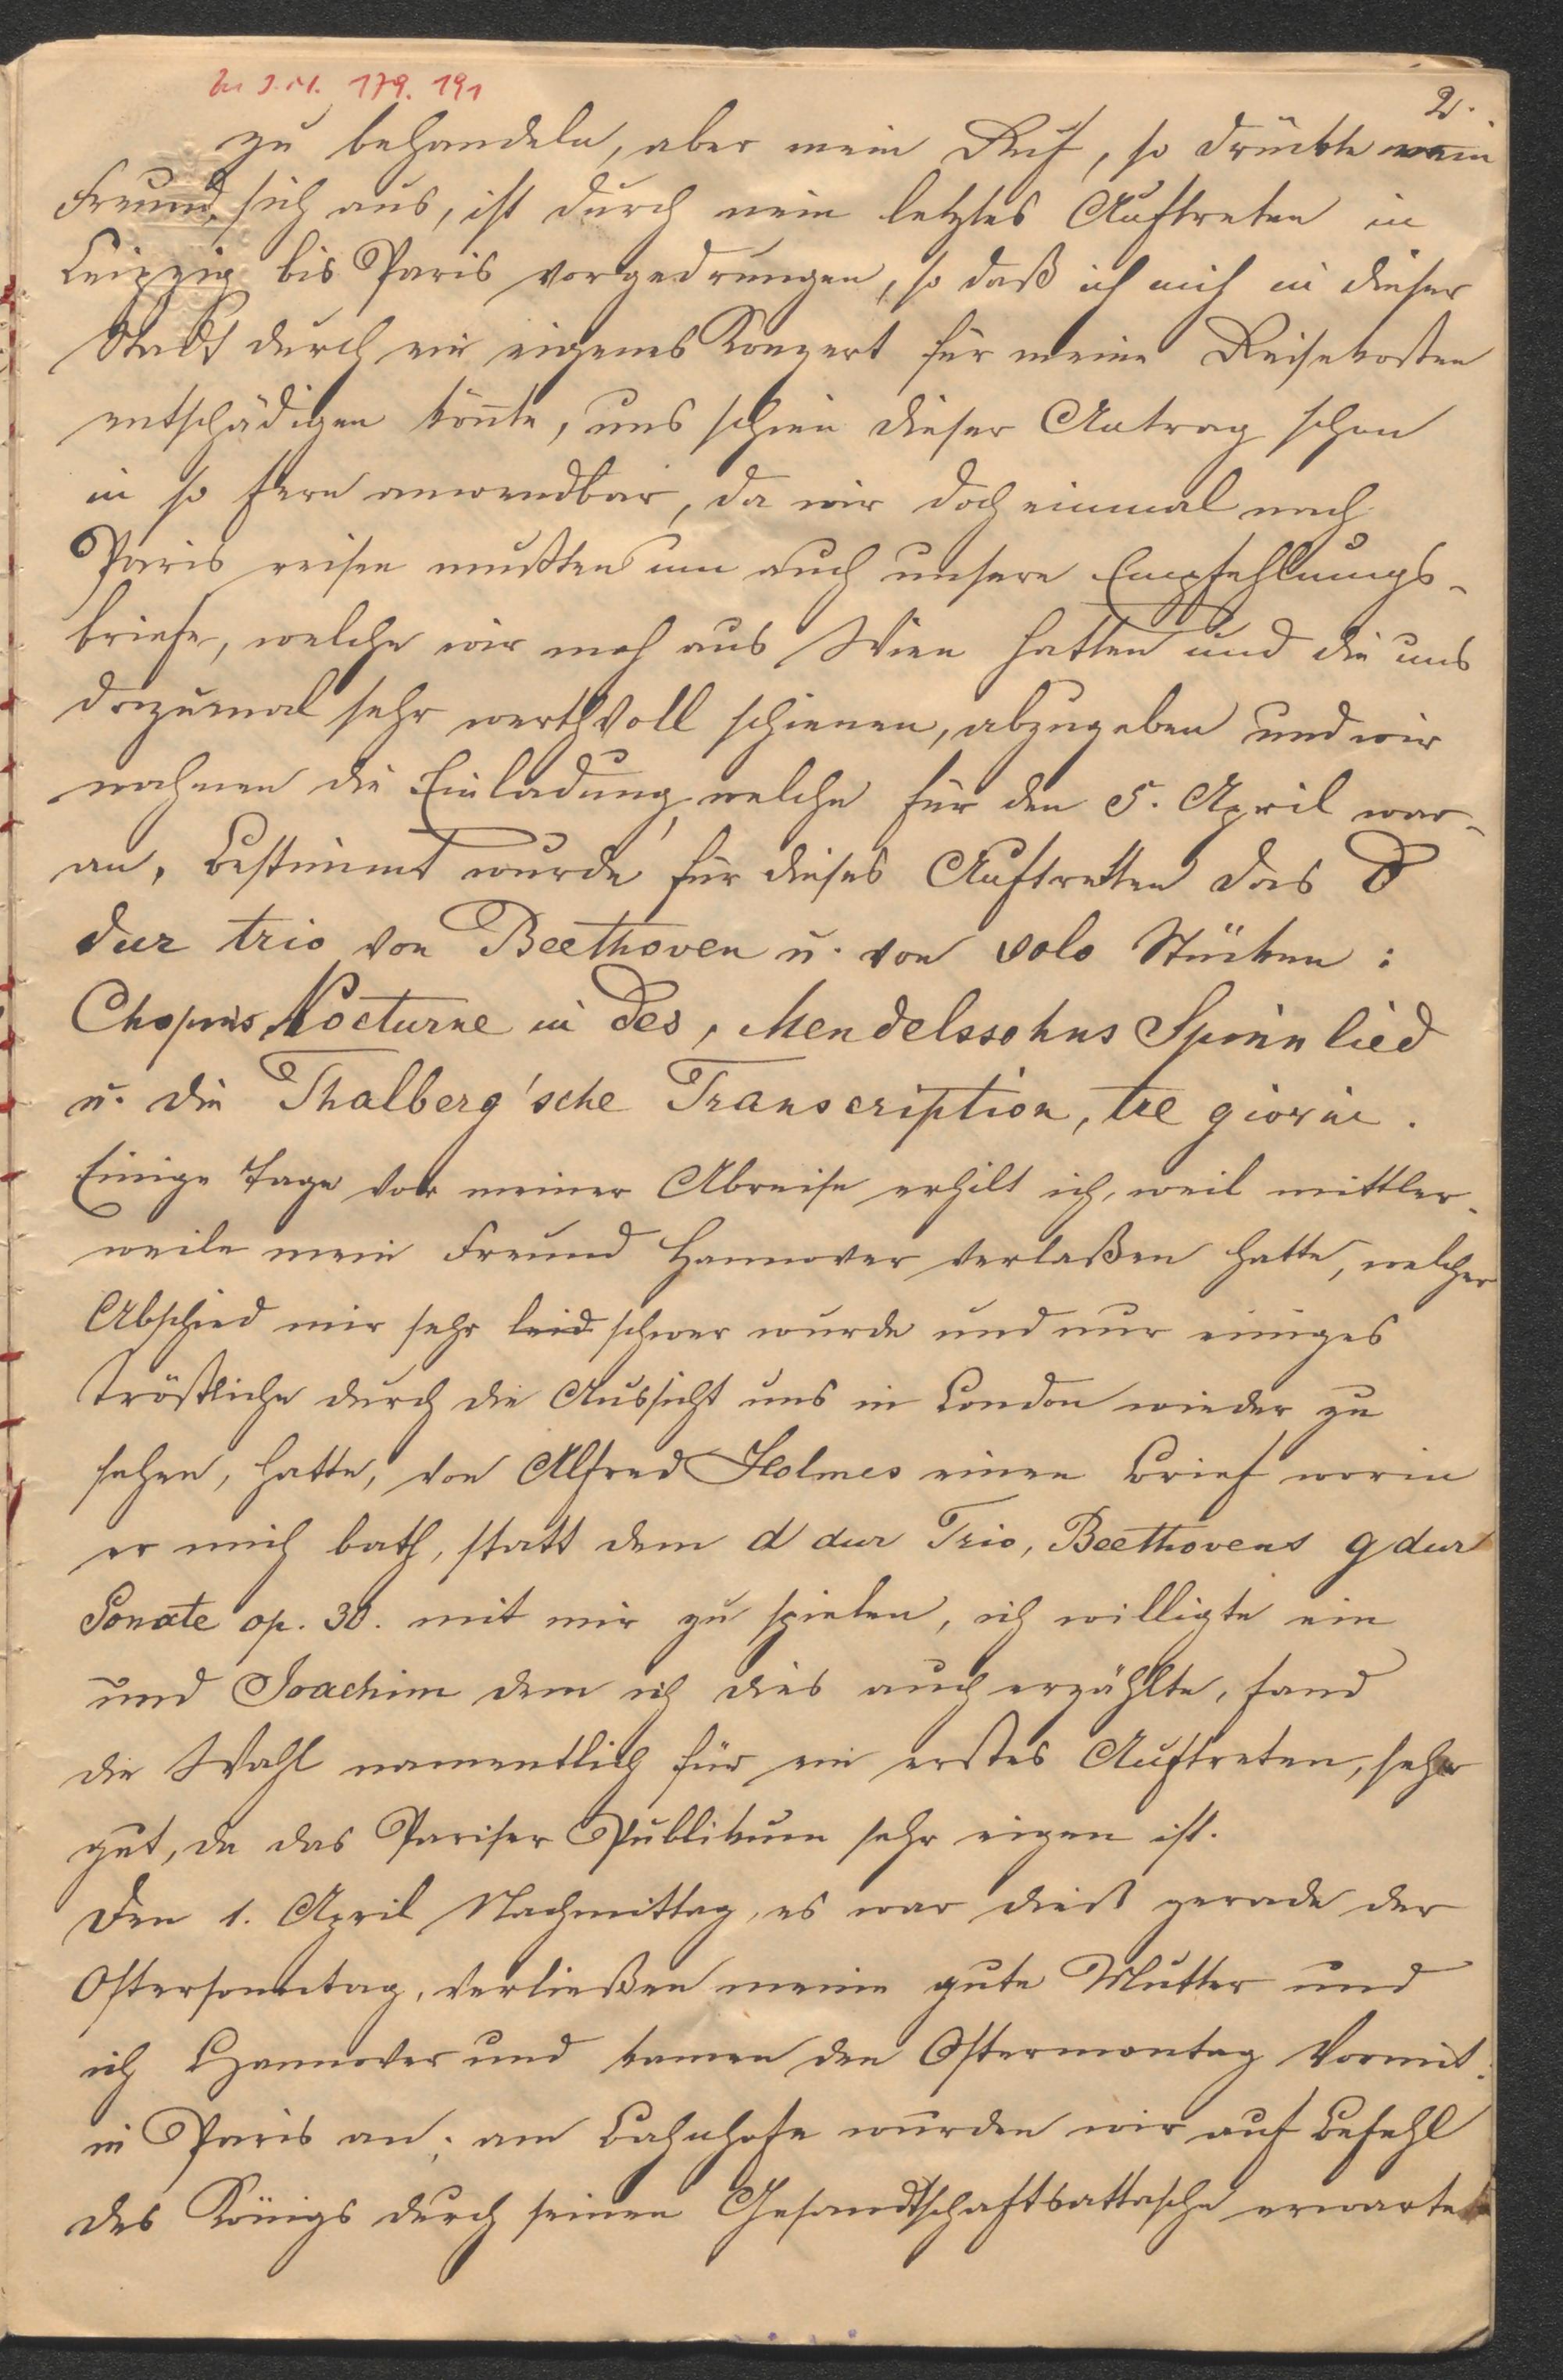 Zu I.N. 179.191
2.
zu behandeln, aber mein Ruf, so drückte mein
Freund sich aus, ist durch mein letztes Auftreten in
Leipzig bis Paris vorgedrungen, so daß ich mich in dieser
Stadt durch ein eigenes Konzert für meine Reisekosten
entschädigen könnte, uns schien dieser Antrag schon
in so fern anwendbar, da wir doch einmal nach
Paris reisen mußten um auch unsere Empfehlungs-
briefe, welche wir noch aus Wien hatten und die uns
dazumal sehr werthvoll schienen, abzugeben und wir
nahmen die Einladung, welche für den 5. April war-
an. Bestimmt wurde für dieses Auftretten das D
dur trio von Beethoven u. von solo Stücken:
Chopins Nocturne in Des, Mendelssohns Spinnlied
u. die Thalberg'sche Transcription, tre giorni.
Einige Tage vor meiner Abreise erhilt ich, weil mittler-
weile mein Freund Hannover verlaßen hatte, welcher
Abschied mir sehr leid schwer wurde und nur einiges
Tröstliche durch die Aussicht uns in London wieder zu
sehen, hatte, von Alfred Holmes einen Brief worin
er mich bath, statt dem d dur Trio, Beethovens g dur
Sonate op. 30. mit mir zu spielen, ich willigte ein
und Joachim dem ich dies auch erzählte, fand
die Wahl namentlich für ein erstes Auftreten, sehr
gut, da das Pariser Publikum sehr eigen ist.
Den 1. April Nachmittag, es war dieß gerade der
Ostersonntag, verließen meine gute Mutter und
ich Hannover und kamen den Ostermontag Vormit.
in Paris an; am Bahnhofe wurden wir auf Befehl
des Königs durch seinen Gesandtschaftsattasche erwartet